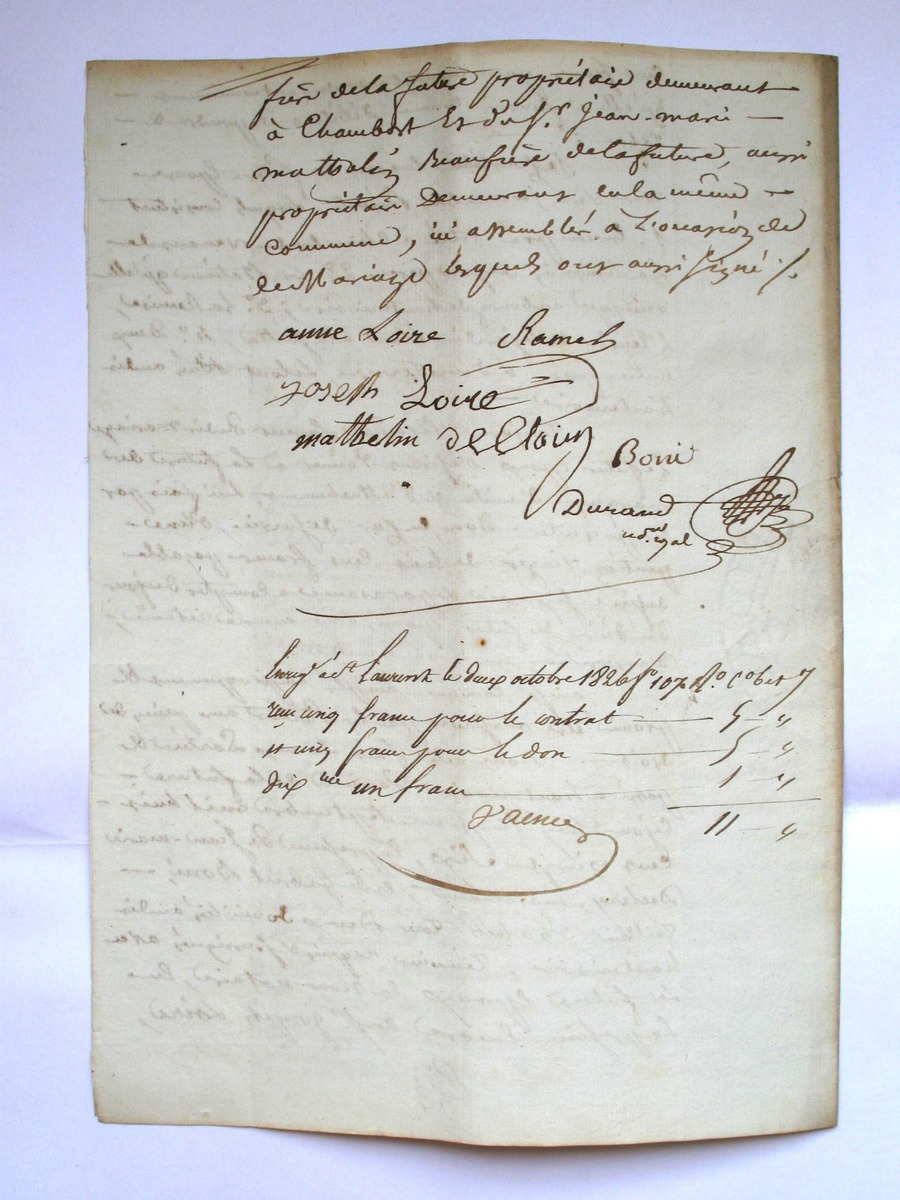 frère de la future propriétaire demeurant
à Chambost Et du Sr. Jean-marie
mathelin Beaufrère de la future, aussi
propriétaire Demeurant en la même
commune, ici assemblés à L'occasion de
ce Mariage lesquels ont aussi signé ./.
anne Loire Ramel
joseph Loire
mathelin
Boni
Durand
not. royal
Enreg. à St. Laurent le deux octobre 1826 fo 107 Ro. Co 6 et 7
reçu cinq francs pour le contrat 5 "
et cinq francs pour le don 5 "
dixme un franc 1 "
11 "